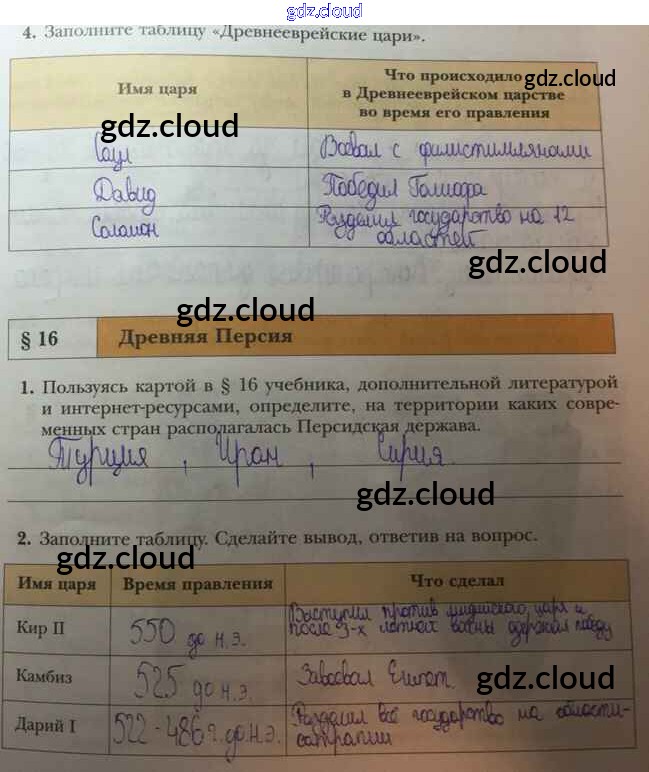 gdz.cloud
4. Заполните таблицу «Древнееврейские цари».
Имя царя
Что происходило
в Древнееврейском царстве
во время его правления
gdz.cloud
gdz.cloud
Саул
Воевал с филистимлянами
Давид
Победил Голиафа
Соломон
Разделил государство на 12
областей
gdz.cloud
gdz.cloud
§ 16
Древняя Персия
1. Пользуясь картой в § 16 учебника, дополнительной литературой
и интернет-ресурсами, определите, на территории каких совре-
менных стран располагалась Персидская держава.
Турция, Иран, Сирия.
gdz.cloud
2. Заполните таблицу. Сделайте вывод, ответив на вопрос.
gdz.cloud
Имя царя
Время правления
Что сделал
Кир II
550 до н.э.
Выступил против мидийского царя и
после 3-х летней войны одержал победу
Камбиз
525 до н.э.
Завоевал Египет.
gdz.cloud
Дарий I
522-486 г. до н.э.
Разделил всё государство на области-
сатрапии